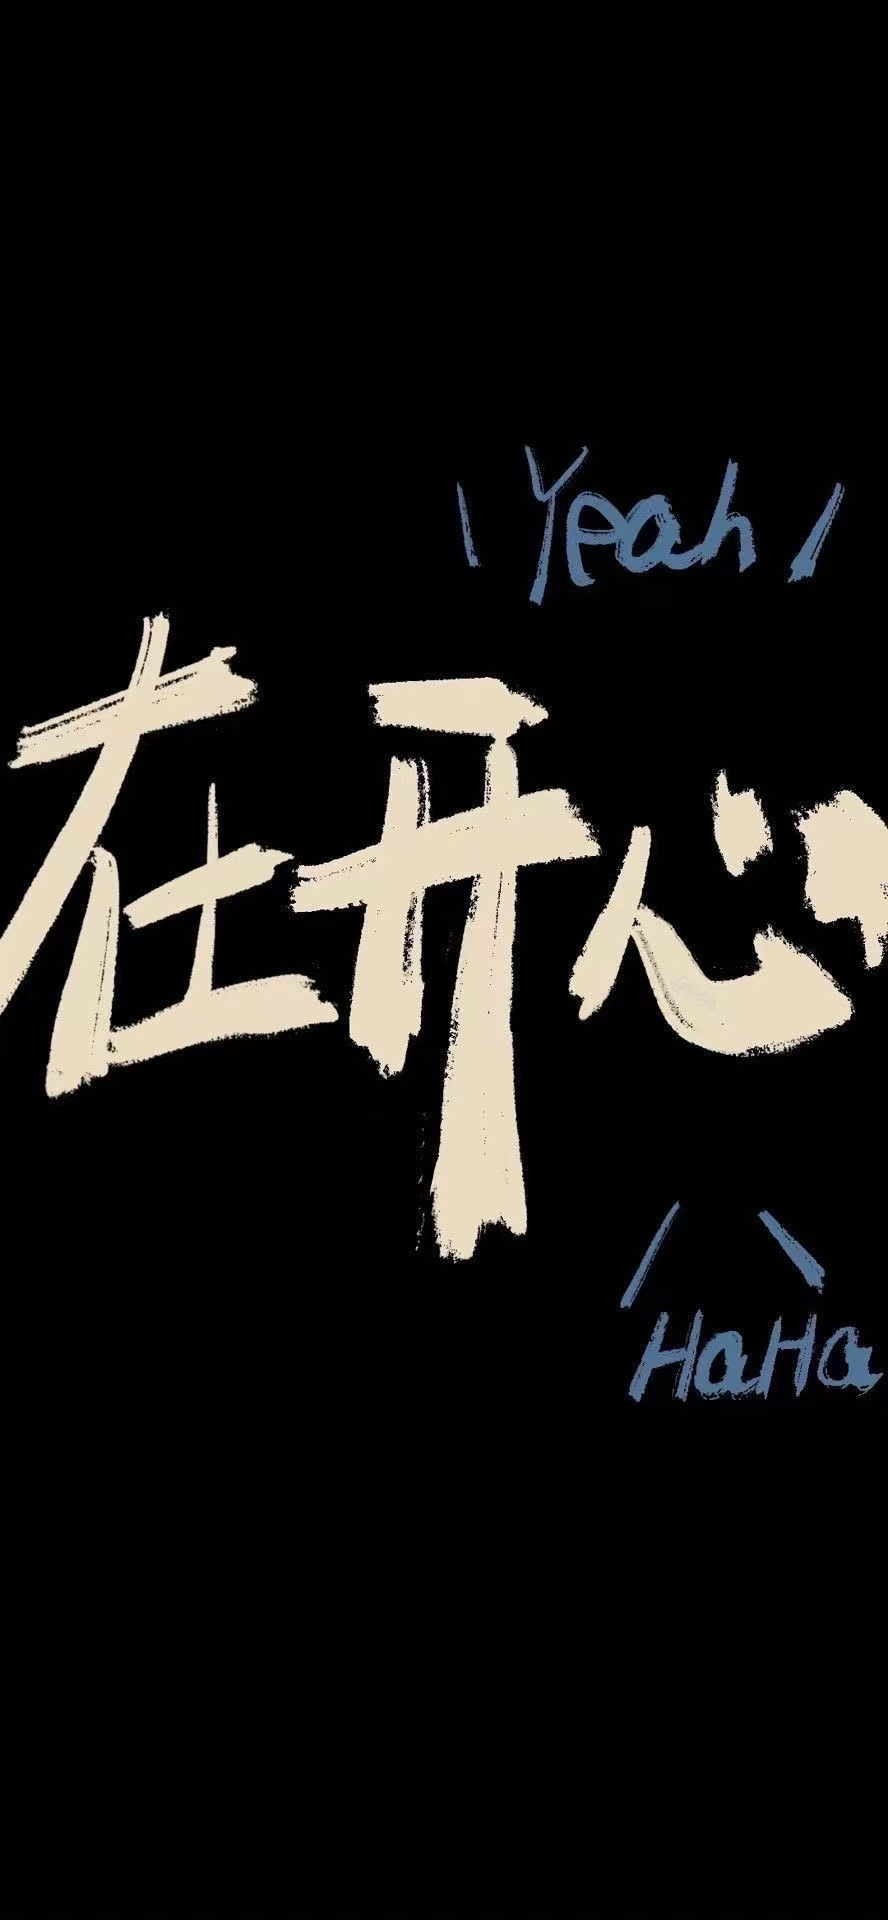 Yeah
在开心
HaHa